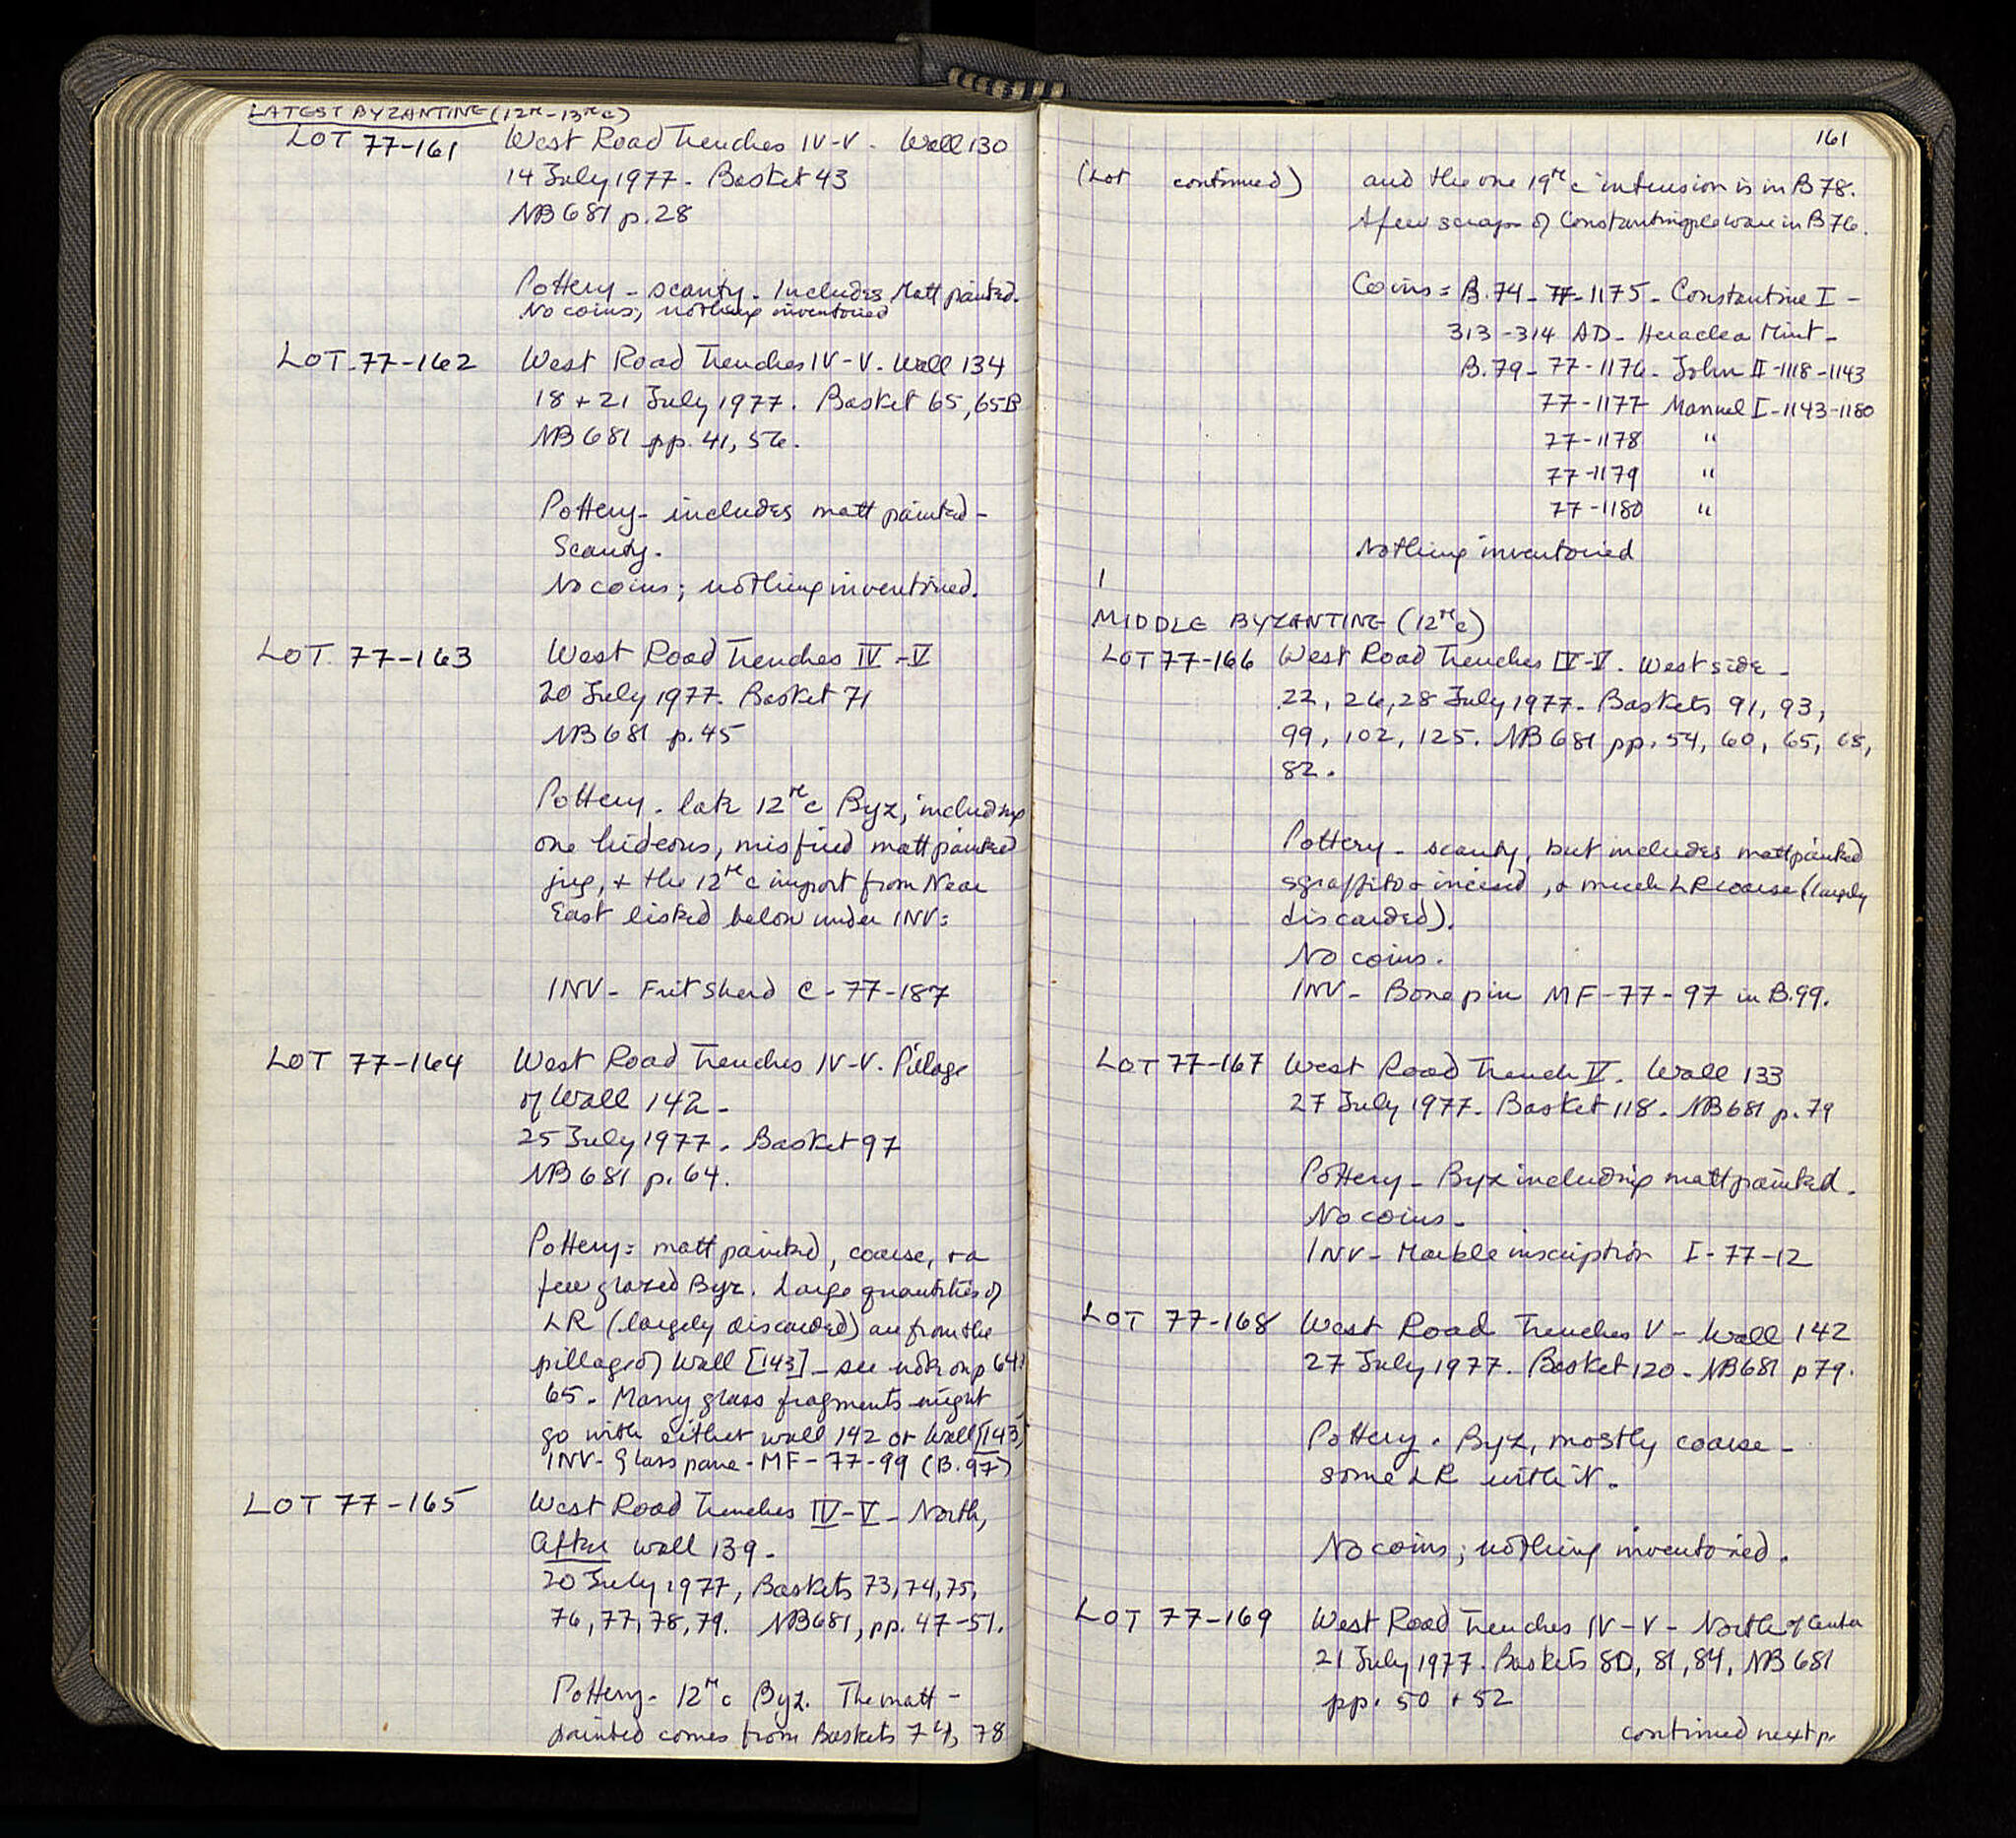 LATEST BYZANTINE (12th-13th c)
LOT 77-161 West Road Trenches IV-V - Wall 130
14 July 1977 - Basket 43
NB 681 p. 28
Pottery - scanty - Includes Matt painted.
No coins; nothing inventoried
LOT 77-162 West Road Trenches IV-V. Wall 134
18 + 21 July 1977. Basket 65, 65B
NB 681 pp. 41, 56.
Pottery - includes matt painted -
Scanty.
No coins; nothing inventoried.
LOT 77-163 West Road Trenches IV-V
20 July 1977. Basket 71
NB 681 p. 45
Pottery - late 12th c Byz, including
one hideous, misfired matt painted
jug, + the 12th c import from Near
East listed below under INV:
INV - Frit Sherd C-77-187
LOT 77-164 West Road Trenches IV-V. Pillage
of Wall 142 -
25 July 1977. Basket 97
NB 681 p. 64.
Pottery = matt painted, coarse, + a
few glazed Byz. Large quantities of
LR (largely discarded) are from the
pillage of Wall [143] - see note on p 64 +
65. Many glass fragments might
go with either wall 142 or Wall [143]
INV - Glass pane - MF-77-99 (B.97)
LOT 77-165 West Road Trenches IV-V - North,
After wall 139 -
20 July 1977, Baskets 73, 74, 75,
76, 77, 78, 79. NB 681, pp. 47-51.
Pottery - 12th c Byz. The matt-
painted comes from Baskets 74, 78
161
(Lot continued) and the one 19th c intrusion is in B 78.
A few scraps of Constantinople ware in B 76.
Coins = B.74 - 77-1175 - Constantine I -
313-314 AD - Heraclea Mint -
B.79 - 77-1176 - John II - 1118-1143
77-1177 Manuel I - 1143-1180
77-1178 "
77-1179 "
77-1180 "
Nothing inventoried
MIDDLE BYZANTINE (12th c)
LOT 77-166 West Road Trenches IV-V. West side -
22, 26, 28 July 1977 - Baskets 91, 93,
99, 102, 125. NB 681 pp. 54, 60, 65, 68,
82.
Pottery - scanty, but includes matt painted
sgraffito + incised, + much LR coarse (largely
discarded).
No coins.
INV - Bone pin MF-77-97 in B.99.
LOT 77-167 West Road Trench V. Wall 133
27 July 1977. Basket 118. NB 681 p. 79
Pottery - Byz including matt painted.
No coins -
INV - Marble inscription I-77-12
LOT 77-168 West Road Trenches V - Wall 142
27 July 1977. Basket 120 - NB 681 p 79.
Pottery. Byz, mostly coarse -
some LR with it.
No coins; nothing inventoried.
LOT 77-169 West Road Trenches IV-V - North of Center
21 July 1977. Baskets 80, 81, 84, NB 681
pp. 50 + 52
continued next p.